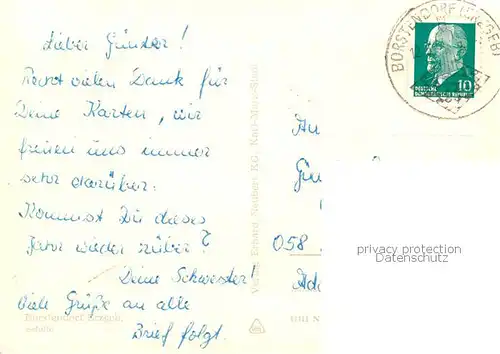 Lieber Günter!
Recht vielen Dank für
Deine Karten, wir
freuen uns immer
sehr darüber.
Kommst Du dieses
Jahr wieder rüber?
Deine Schwester!
Viele Grüße an alle
Brief folgt.
Borstendorf Erzgeb.
Verlag Erhard Neubert KG, Karl-Marx-Stadt
BORSTENDORF (ERZGEB)
10
DEUTSCHE
DEMOKRATISCHE REPUBLIK
An
058
privacy protection
Datenschutz